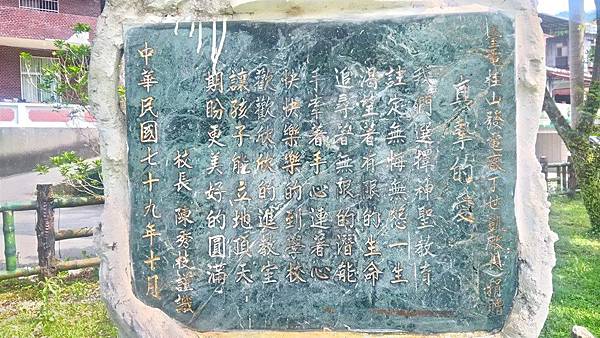 真摯的愛
我們選擇神聖教育
註定無悔無怨一生
渴望著有限的生命
追尋著無限的潛能
手牽著手心連著心
快快樂樂的到學校
歡歡欣欣的進教室
讓孩子能立地頂天
期盼更美好的圓滿
校長 陳秀枝 謹識
中華民國七十九年十月